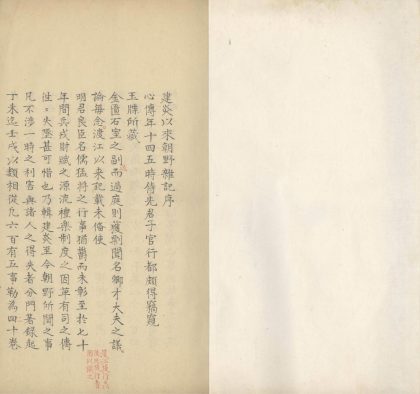 建炎以來朝野雜記序
心傳年十四五時侍先君子官行都頗得竊窺
玉牒所藏
金匱石室之副而過庭則獲剽聞名卿才大夫之議
論每念渡江以來記載未僃使
明君良臣名儒猛將之行事猶鬱而未彰至於七十
年間兵戎財賦之源流禮樂制度之因革有司之傳
徃徃失墜甚可惜也乃輯建炎至今朝野所聞之事
凡不涉一時之利害與諸人之得失者分門著錄起
丁未迄壬戌以類相從凢六百有五事勒為四十卷